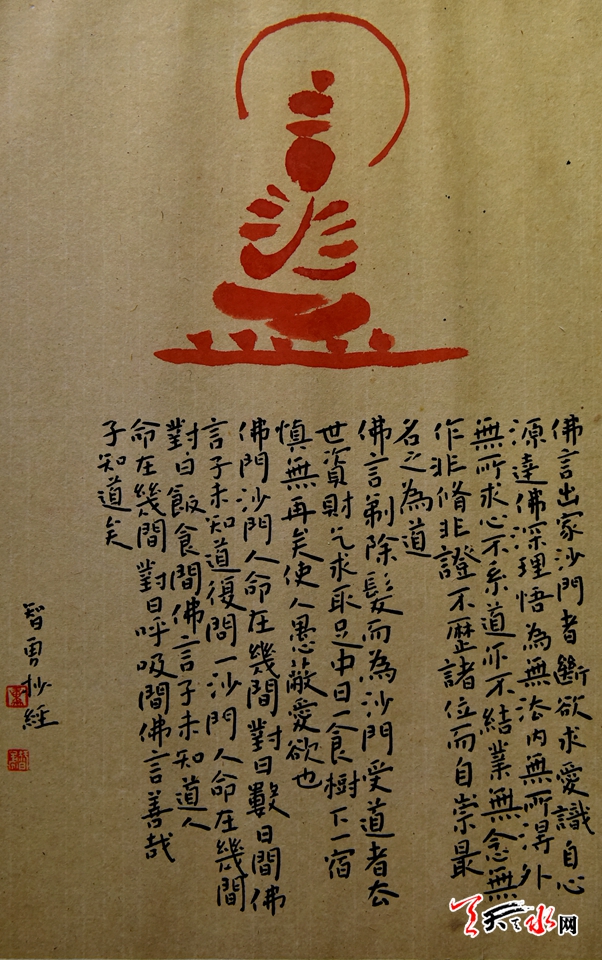 佛言出家沙門者斷欲求愛識自心
源達佛深理悟為無法內無所得外
無所求心不系道亦不結業無念無
作非脩非證不歷諸位而自崇最
名之為道
佛言剃除髮而為沙門受道者去
世資財乞求取足中日一食樹下一宿
慎無再矣使人愚蔽愛欲也
佛門沙門人命在幾間對曰數日間佛
言子未知道復問一沙門人命在幾間
對曰飯食間佛言子未知道人
命在幾間對曰呼吸間佛言善哉
子知道矣
智勇抄經
天天天水网